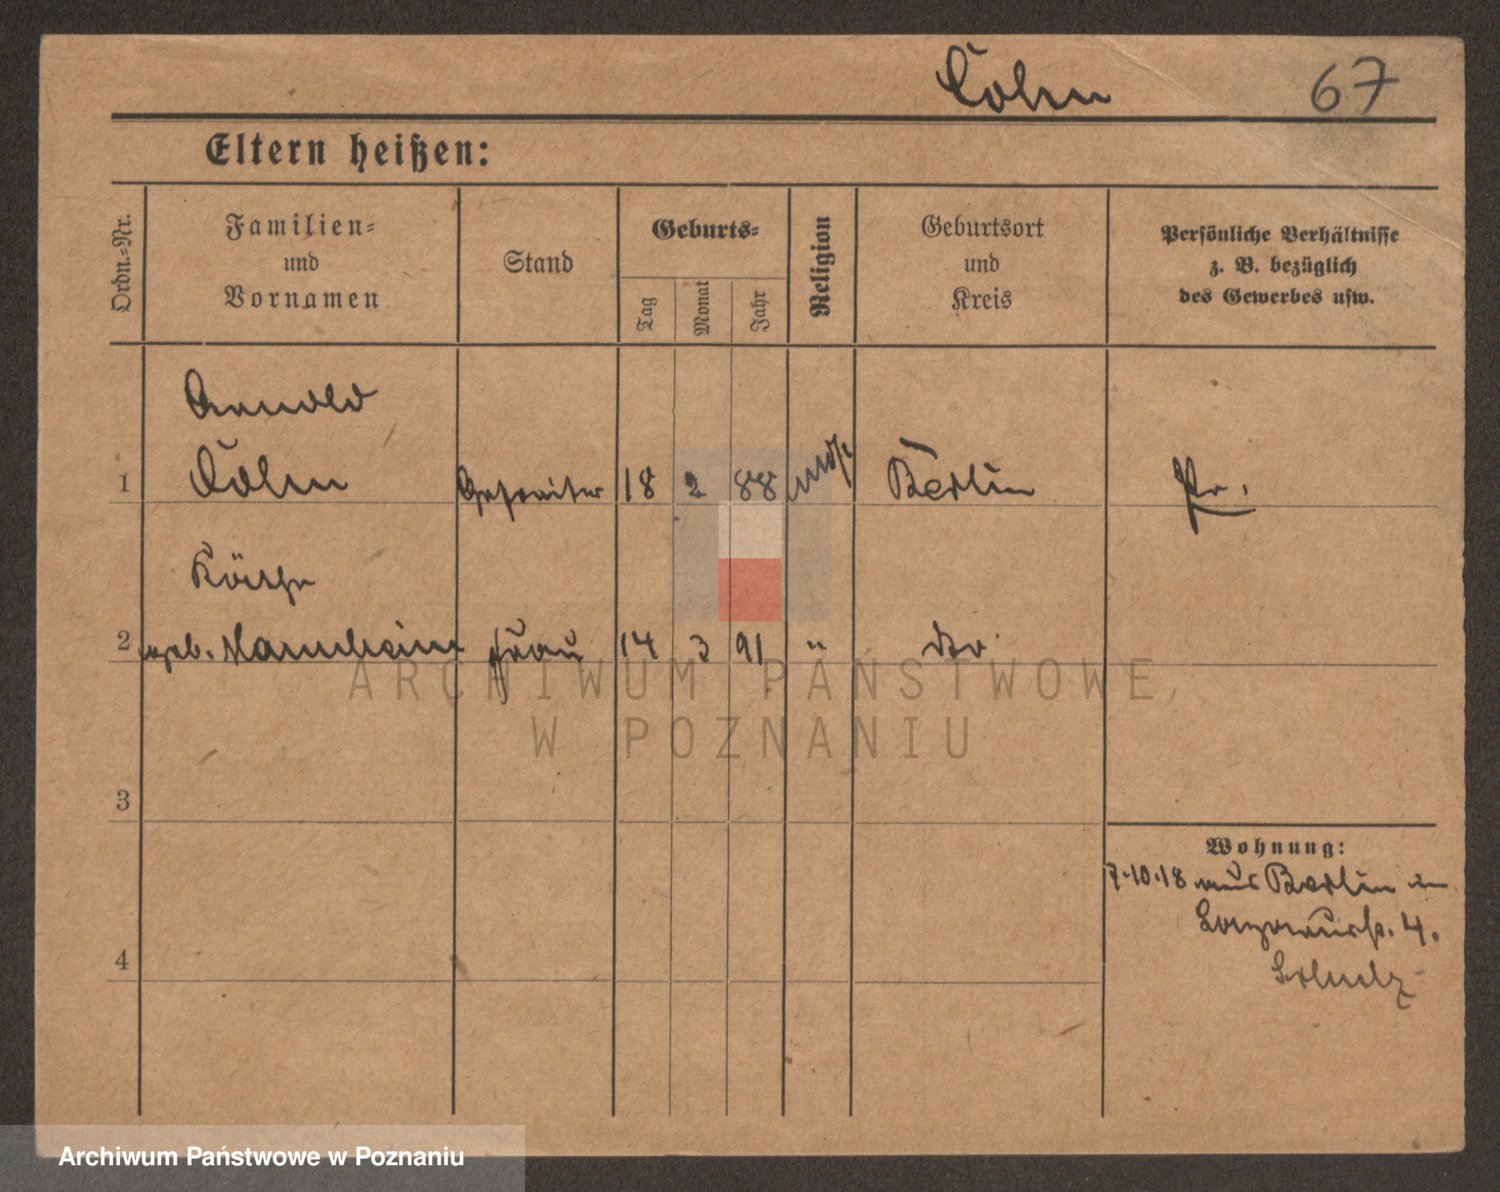 Cohn 67
Eltern heißen:
Ordn.-Nr.
Familien-
und
Vornamen
Stand
Geburts-
Tag
Monat
Jahr
Religion
Geburtsort
und
Kreis
Persönliche Verhältnisse
z. B. bezüglich
des Gewerbes usw.
Arnold
1 Cohn Gefreiter 18 2 88 mos. Berlin Pr.
Käthe
2 geb. Mannheim Frau 14 3 91 " do.
ARCHIWUM PAŃSTWOWE
W POZNANIU
3
Wohnung:
7.10.18 aus Berlin in
4.
4
Archiwum Państwowe w Poznaniu